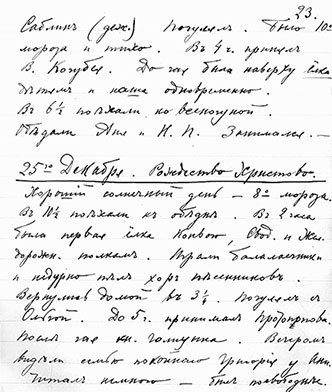 23.
Саблинъ (деж.) Погулялъ. Было 10°
мороза и тихо. Въ 4 ч. принялъ
В. Кочубея. До чая была наверху ёлка
дѣтямъ и наша одновременно.
Въ 6½ поѣхали ко всенощной.
Обѣдали Аня и Н. П. Занимался. —
25го Декабря. Рождество Христово.
Хорошій солнечный день – 8° мороза.
Въ 10½ поѣхали къ обѣднѣ. Въ 2 часа
была первая ёлка Конвою, Свод. и Жел.
дорожн. полкамъ. Играли балалаечники
и недурно пѣлъ хоръ пѣсенниковъ.
Вернулись домой въ 3½. Погулялъ съ
Ольгой. До 5 ч. принималъ Протопопова.
Послѣ чая кн. Голицына. Вечеромъ
видѣли семью покойнаго Григорія у Ани.
Читалъ немного —